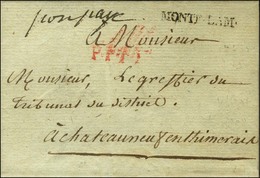 franc
MONTE LAM.
A Monsieur
Monsieur, Le greffier du
Tribunal du district,
A chateauneuf enthimerais